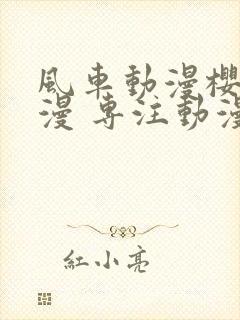 風車動漫櫻
漫 專注動漫
紅小亮